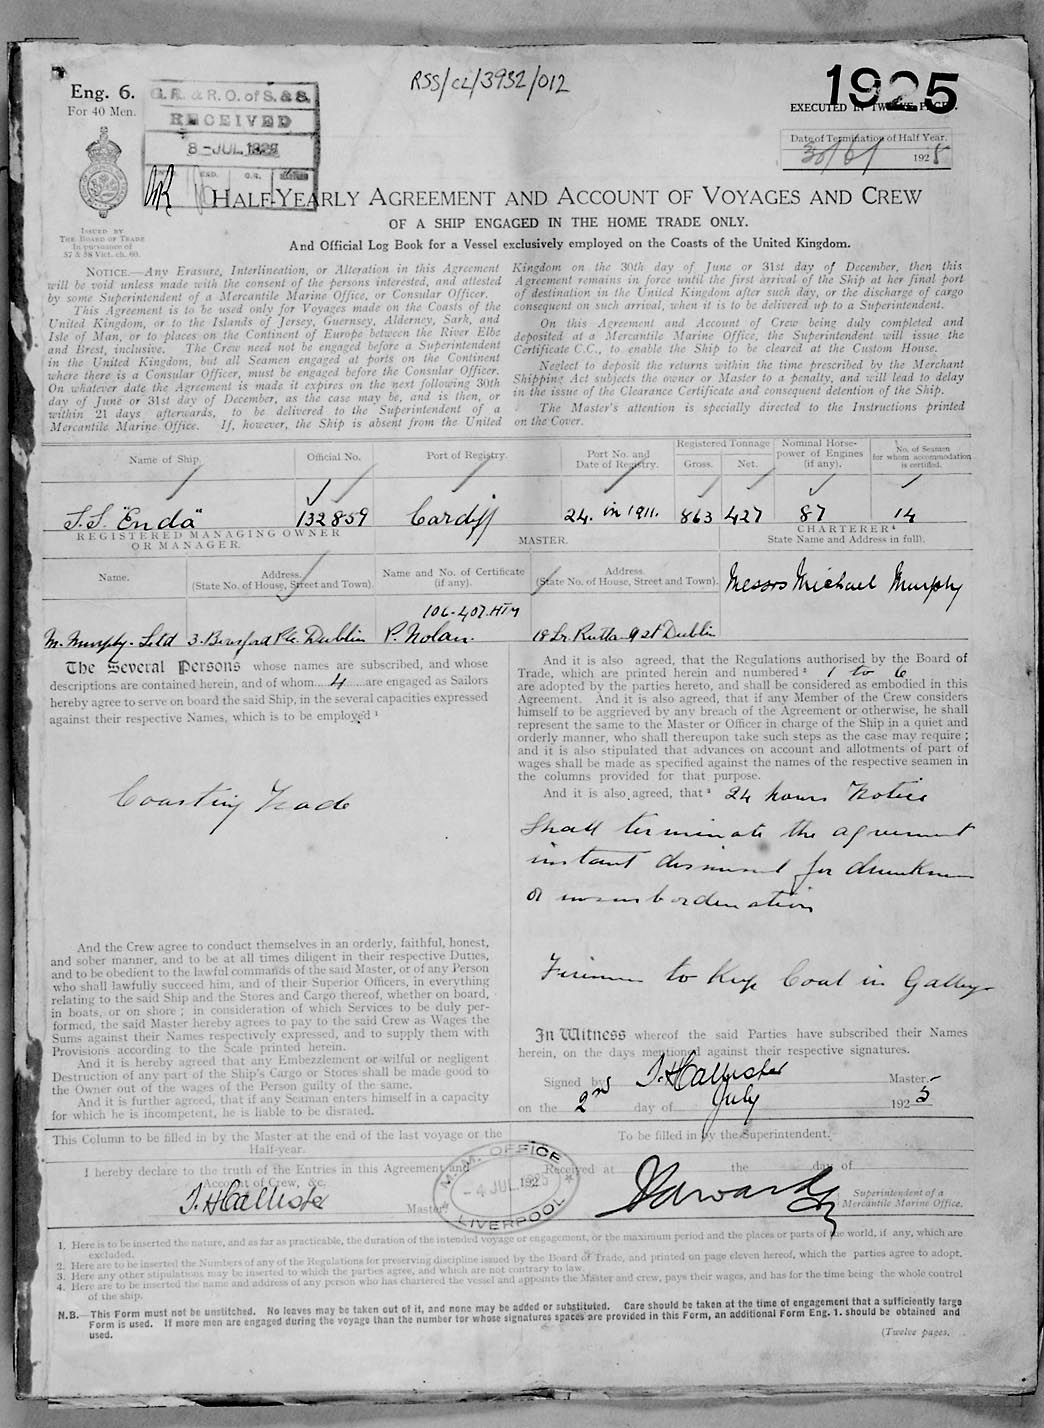 RSS/CL/3932/012
1925
Eng. 6.
For 40 Men.
G. R. & R. O. of S. & S.
RECEIVED
8 - JUL 1925
EXECUTED IN TWELVE PAGES.
Date of Termination of Half Year.
30/6/ 1925
ISSUED BY
THE BOARD OF TRADE
In pursuance of
57 & 58 Vict. ch. 60.
HALF-YEARLY AGREEMENT AND ACCOUNT OF VOYAGES AND CREW
OF A SHIP ENGAGED IN THE HOME TRADE ONLY.
And Official Log Book for a Vessel exclusively employed on the Coasts of the United Kingdom.
NOTICE.—Any Erasure, Interlineation, or Alteration in this Agreement
will be void unless made with the consent of the persons interested, and attested
by some Superintendent of a Mercantile Marine Office, or Consular Officer.
This Agreement is to be used only for Voyages made on the Coasts of the
United Kingdom, or to the Islands of Jersey, Guernsey, Alderney, Sark, and
Isle of Man, or to places on the Continent of Europe between the River Elbe
and Brest, inclusive. The Crew need not be engaged before a Superintendent
in the United Kingdom, but all Seamen engaged at ports on the Continent
where there is a Consular Officer, must be engaged before the Consular Officer.
On whatever date the Agreement is made it expires on the next following 30th
day of June or 31st day of December, as the case may be, and is then, or
within 21 days afterwards, to be delivered to the Superintendent of a
Mercantile Marine Office. If, however, the Ship is absent from the United
Kingdom on the 30th day of June or 31st day of December, then this
Agreement remains in force until the first arrival of the Ship at her final port
of destination in the United Kingdom after such day, or the discharge of cargo
consequent on such arrival, when it is to be delivered up to a Superintendent.
On this Agreement and Account of Crew being duly completed and
deposited at a Mercantile Marine Office, the Superintendent will issue the
Certificate C.C., to enable the Ship to be cleared at the Custom House.
Neglect to deposit the returns within the time prescribed by the Merchant
Shipping Act subjects the owner or Master to a penalty, and will lead to delay
in the issue of the Clearance Certificate and consequent detention of the Ship.
The Master's attention is specially directed to the Instructions printed
on the Cover.
Name of Ship.
Official No.
Port of Registry.
Port No. and
Date of Registry.
Registered Tonnage
Gross. Net.
Nominal Horse-
power of Engines
(if any).
No. of Seamen
for whom accommodation
is certified.
S.S. "Enda" 132859 Cardiff 24. in 1911. 863 427 87 14
REGISTERED MANAGING OWNER
OR MANAGER.
MASTER.
CHARTERER⁴
State Name and Address in full).
Name.
Address.
(State No. of House, Street and Town).
Name and No. of Certificate
(if any).
Address.
(State No. of House, Street and Town).
Messrs Michael Murphy
106.407.HTM
M. Murphy. Ltd 3. Beresford Plc. Dublin P. Nolan. Dublin
The Several Persons whose names are subscribed, and whose
descriptions are contained herein, and of whom 4 are engaged as Sailors
hereby agree to serve on board the said Ship, in the several capacities expressed
against their respective Names, which is to be employed ¹
Coasting Trade
And the Crew agree to conduct themselves in an orderly, faithful, honest,
and sober manner, and to be at all times diligent in their respective Duties,
and to be obedient to the lawful commands of the said Master, or of any Person
who shall lawfully succeed him, and of their Superior Officers, in everything
relating to the said Ship and the Stores and Cargo thereof, whether on board,
in boats, or on shore ; in consideration of which Services to be duly per-
formed, the said Master hereby agrees to pay to the said Crew as Wages the
Sums against their Names respectively expressed, and to supply them with
Provisions according to the Scale printed herein.
And it is hereby agreed that any Embezzlement or wilful or negligent
Destruction of any part of the Ship's Cargo or Stores shall be made good to
the Owner out of the wages of the Person guilty of the same.
And it is further agreed, that if any Seaman enters himself in a capacity
for which he is incompetent, he is liable to be disrated.
And it is also agreed, that the Regulations authorised by the Board of
Trade, which are printed herein and numbered ² 1 to 6
are adopted by the parties hereto, and shall be considered as embodied in this
Agreement. And it is also agreed, that if any Member of the Crew considers
himself to be aggrieved by any breach of the Agreement or otherwise, he shall
represent the same to the Master or Officer in charge of the Ship in a quiet and
orderly manner, who shall thereupon take such steps as the case may require ;
and it is also stipulated that advances on account and allotments of part of
wages shall be made as specified against the names of the respective seamen in
the columns provided for that purpose.
And it is also agreed, that ³ 24 hours Notice
Shall terminate the agreement
instant dismissal for drunkenness
or insurbordenation
Firemen to Keep Coal in Galley
In Witness whereof the said Parties have subscribed their Names
herein, on the days mentioned against their respective signatures.
Signed by J. H Callister Master,
on the 2nd day of July 1925
This Column to be filled in by the Master at the end of the last voyage or the
Half-year.
I hereby declare to the truth of the Entries in this Agreement and
Account of Crew, &c.
J. H Callister Master.
M. M. OFFICE
- 4 JUL 1925
LIVERPOOL
To be filled in by the Superintendent.
Received at the day of 192
Superintendent of a
Mercantile Marine Office.
1. Here is to be inserted the nature, and as far as practicable, the duration of the intended voyage or engagement, or the maximum period and the places or parts of the world, if any, which are
excluded.
2. Here are to be inserted the Numbers of any of the Regulations for preserving discipline issued by the Board of Trade, and printed on page eleven hereof, which the parties agree to adopt.
3. Here any other stipulations may be inserted to which the parties agree, and which are not contrary to law.
4. Here are to be inserted the name and address of any person who has chartered the vessel and appoints the Master and crew, pays their wages, and has for the time being the whole control
of the ship.
N.B.—This Form must not be unstitched. No leaves may be taken out of it, and none may be added or substituted. Care should be taken at the time of engagement that a sufficiently large
Form is used. If more men are engaged during the voyage than the number for whose signatures spaces are provided in this Form, an additional Form Eng. 1. should be obtained and
used.
(Twelve pages.